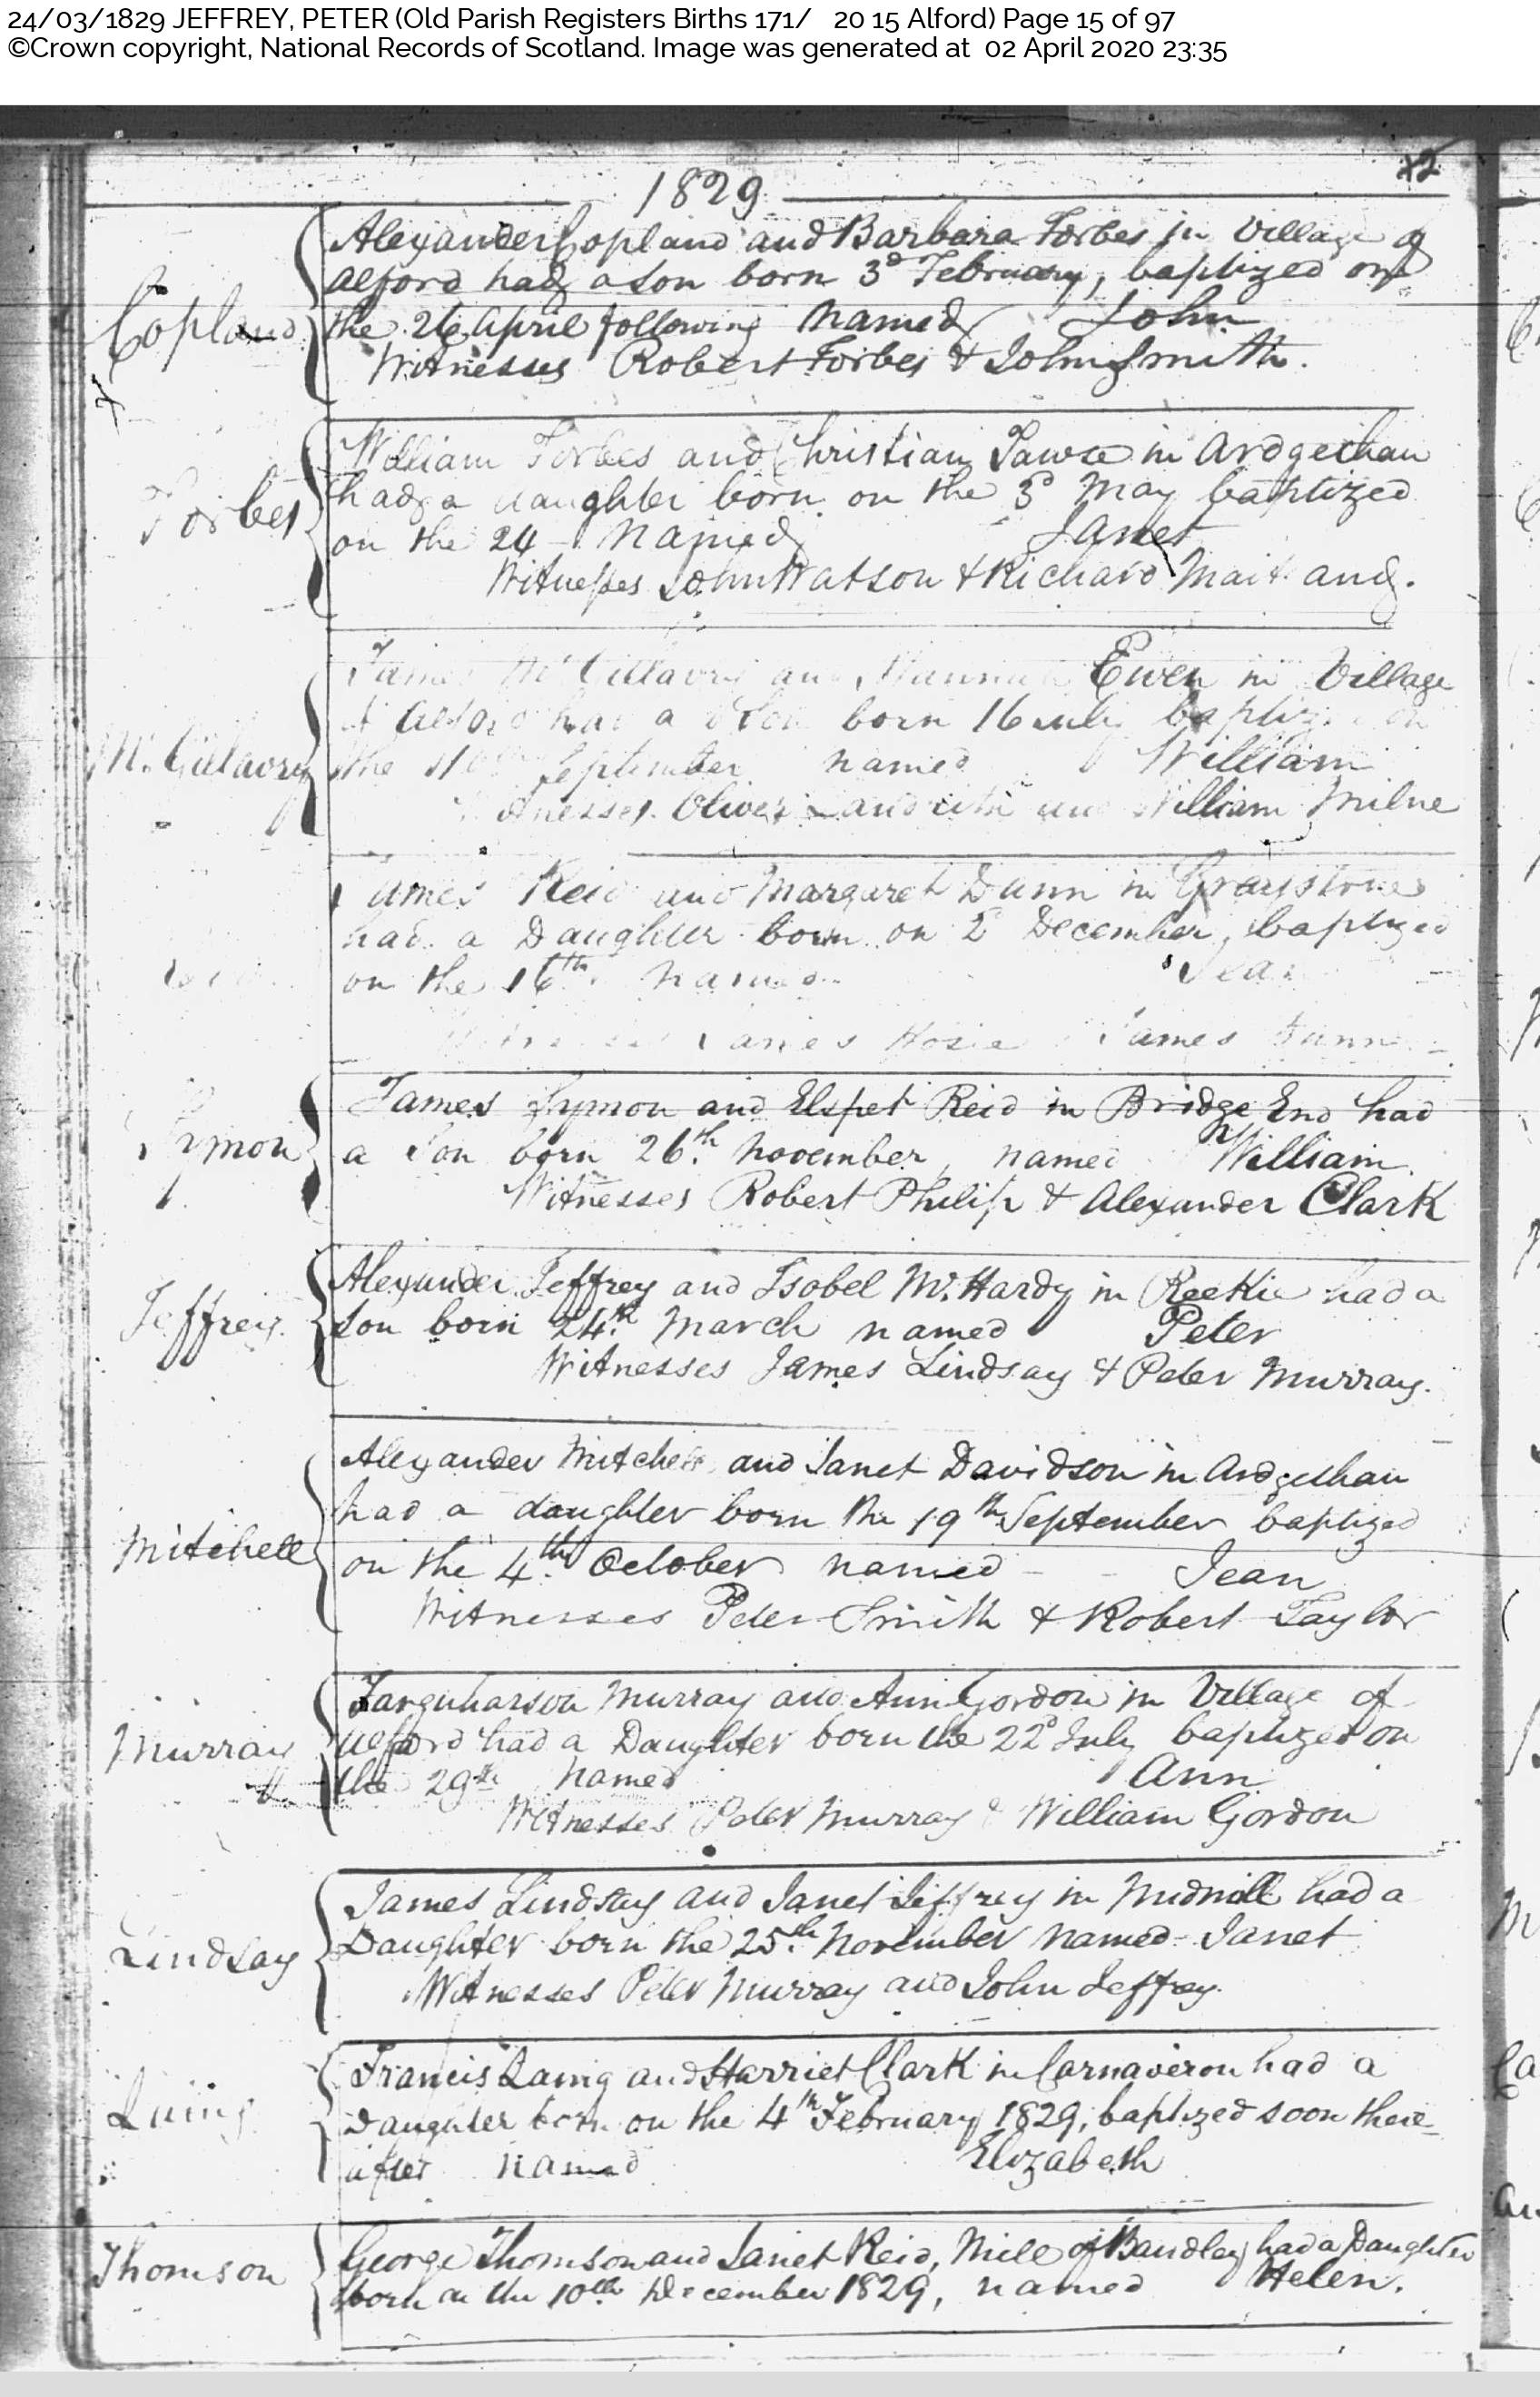 24/03/1829 JEFFREY, PETER (Old Parish Registers Births 171/ 20 15 Alford) Page 15 of 97
©Crown copyright, National Records of Scotland. Image was generated at 02 April 2020 23:35
1829
Alexander Copland and Barbara Forbes in Village of
Alford had a Son born 3d February, baptized on
Copland
the 26 April following named John
Witnesses Robert Forbes & John Smith.
William Forbes and Christian Tawse in Ardgethan
had a daughter born on the 3d May baptized
Forbes
on the 24 named Janet
Witnesses John Watson & Richard Maitland.
James McGillavry and Ewen in Village
of Alford had a Son born 16 July baptized on
McGillavry
the September named William
Witnesses Oliver and William Milne
James Reid and Margaret Dunn in Graystone
had a Daughter born on 2d December, baptized
on the 16th named Jean
Witnesses James Hosie James Dunn
James Symon and Elspet Reid in Bridge End had
Symon
a Son born 26th November, named William.
Witnesses Robert Philip & Alexander Clark
Alexander Jeffrey and Isobel McHardy in Reekie had a
Jeffrey
Son born 24th March named Peter
Witnesses James Lindsay & Peter Murray.
Alexander Mitchell and Janet Davidson in Ardgethan
had a daughter born the 19th September baptized
Mitchell
on the 4th October named Jean
Witnesses Peter Smith & Robert Taylor
Farquharson Murray and Ann Gordon in Village of
Murray
Alford had a Daughter born the 22d July baptized on
the 29th named Ann
Witnesses Peter Murray & William Gordon
James Lindsay and Janet Jeffrey in Midmill had a
Lindsay
Daughter born the 25th November named Janet
Witnesses Peter Murray and John Jeffrey.
Francis Laing and Harriet Clark in Carnaveron had a
Laing
Daughter born on the 4th February 1829, baptized soon there-
after named Elizabeth
Thomson
George Thomson and Janet Reid, Mill of Bandley had a Daughter
born on the 10th December 1829, named Helen.